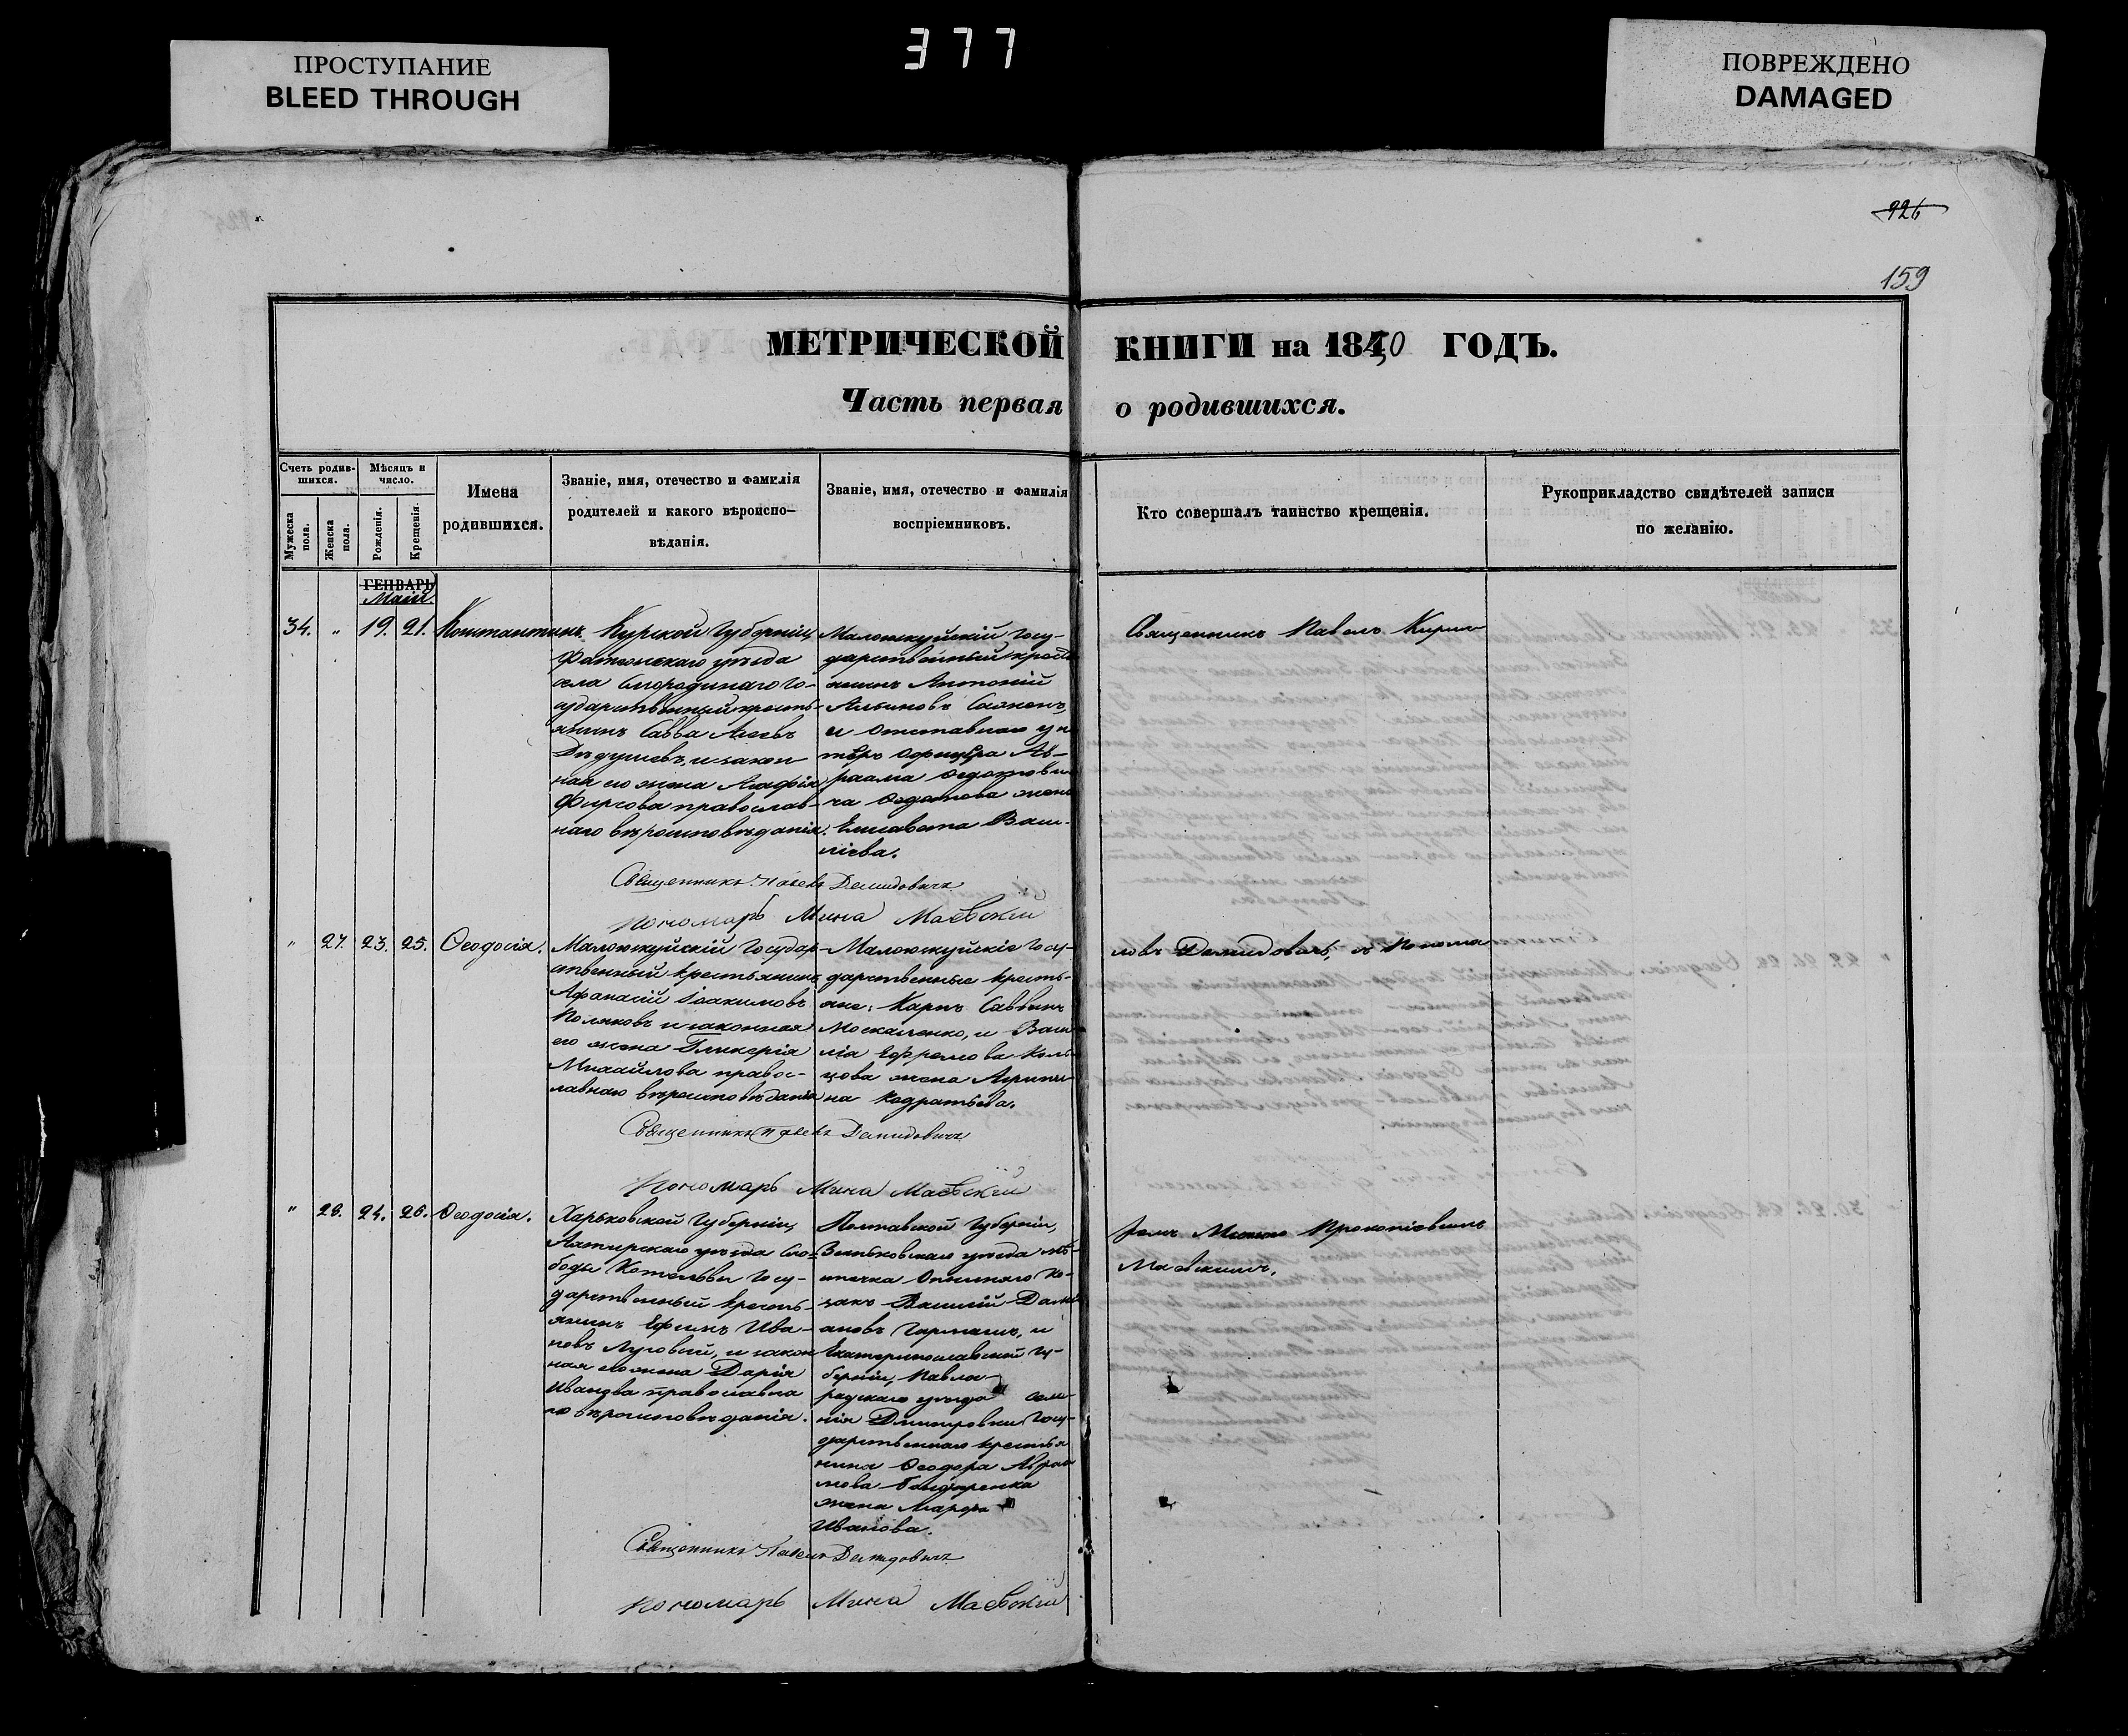 377
ПРОСТУПАНИЕ
BLEED THROUGH
ПОВРЕЖДЕНО
DAMAGED
926
159
МЕТРИЧЕСКОЙ КНИГИ на 1850 ГОДЪ.
Часть первая о родившихся.
Счетъ родив-
шихся.
Мужеска пола.
Женска пола.
Мѣсяцъ и
число.
Рожденія.
Крещенія.
Имена
родившихся.
Званіе, имя, отечество и фамилія
родителей и какого вѣроиспо-
вѣданія.
Званіе, имя, отечество и фамилія
воспріемниковъ.
Кто совершалъ таинство крещенія.
Рукоприкладство свидѣтелей записи
по желанію.
ГЕНВАРЬ
Маій.
34. " 19. 21. Константинъ
Курской Губерніи
Фатежскаго уѣзда
села Смородинаго Го-
сударственный кресть-
янинъ Савва
Дѣдушевъ, и закон
ная его жена Агафія
Фирсова православ-
наго вѣроисповѣданія.
Малоянкуйскій Госу-
дарственный кресть
янинъ Антоній
и Отставнаго ун
теръ Офицера Ав-
раама Ѳедотови
ча Ѳедотова жена
Елисавета Васи-
ліева.
Священникъ Павелъ Демидовичъ
Пономарь Мина Маевскій
" 27. 23. 25. Ѳеодосія.
Малоянкуйскій Государ-
ственный крестьянинъ
Афанасій Іоакимовъ
Поляковъ и законная
его жена Гликерія
Михайлова правос-
лавнаго вѣроисповѣданія
Малоянкуйскіе Госу-
дарственные кресть-
яне: Карпъ Саввинъ
Москаленко, и Васи
лія Ефремова Коль-
цова жена Агрипи-
на Кодратьева.
Священникъ Павелъ Демидовичъ
Пономарь Мина Маевскій
" 28. 24. 26. Ѳеодосія.
Харьковской Губерніи,
Ахтырскаго уѣзда Сло-
боды Котельвы Госу-
дарственный кресть-
янинъ Ефимъ Ива-
новъ Луговый, и закон
ная его жена Дарія
Иванова православна
го вѣроисповѣданія.
Полтавской Губерніи,
Зеньковскаго уѣзда мѣ-
стечка Опошнаго Ко-
закъ Василій Даміа-
новъ Гармашъ, и
Екатеринославской Гу-
берніи, Павло-
градскаго уѣзда селе-
нія Дмитровки Госу-
дарственнаго крестья
нина Ѳеодора Абра
мова Бондаренка
жена Марфа
Иванова.
Священникъ Павелъ Демидовичъ
Пономарь Мина Маевскій
Священникъ Павелъ Кирил-
ловъ Демидовичъ, съ Понома
ремъ Миною Прокопіевымъ
Маевскимъ.